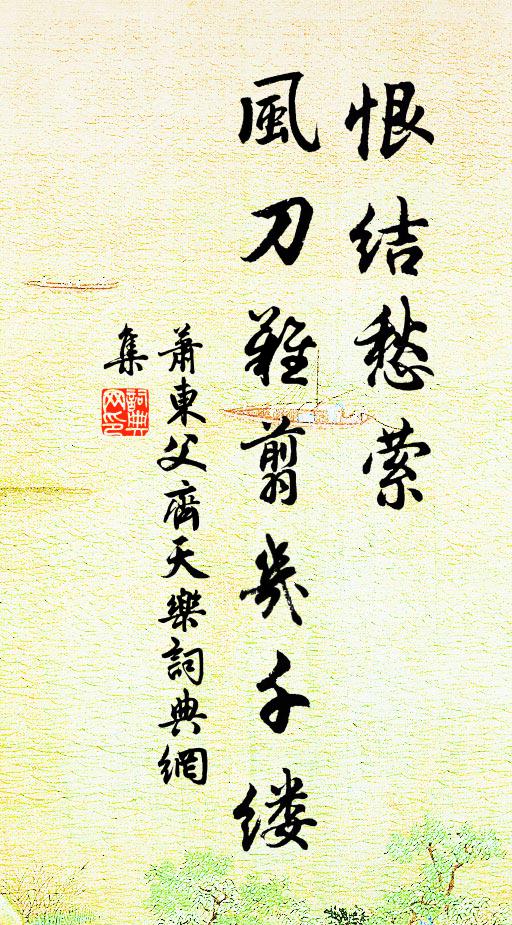 恨结愁萦
風刀難翦幾千缕
萧東父齊天樂詞典網
集
詞典
网印